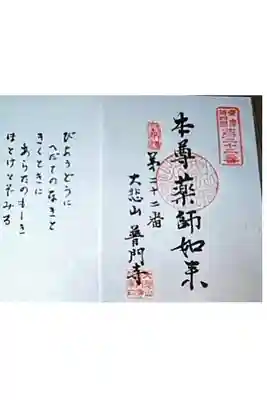 本尊薬師如来
第二十二番
大悲山 普門寺
びようどうに
へだてのなきと
きくときに
あらたのもしき
ほとけとぞみる